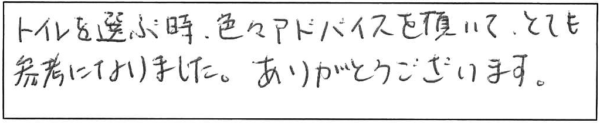 トイレを選ぶ時、色々アドバイスを頂いて、とても
参考になりました。ありがとうございます。